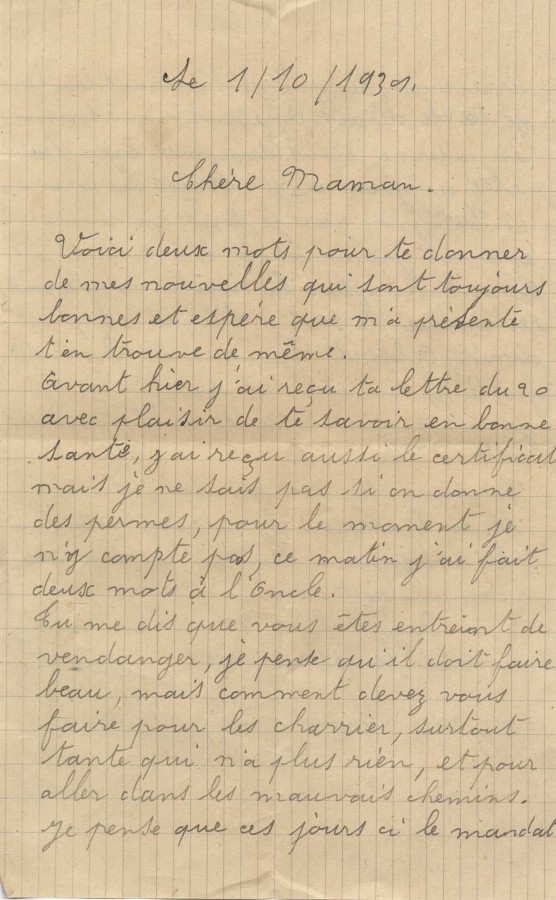 Le 1/10/1939.
Chère Maman.
Voici deux mots pour te donner
de mes nouvelles qui sont toujours
bonnes et espére que m'a présente
t'en trouve de même.
Avant hier j'ai reçu ta lettre du 20
avec plaisir de te savoir en bonne
santé, j'ai reçu aussi le certificat
mais je ne sais pas si on donne
des permes, pour le moment je
n'y compte pas, ce matin j'ai fait
deux mots à l'Oncle.
Tu me dis que vous êtes entreint de
vendanger, je pense qu'il doit faire
beau, mais comment devez vous
faire pour les charrier, surtout
tante qui n'a plus rien, et pour
aller dans les mauvais chemins.
Je pense que ces jours ci le mandat